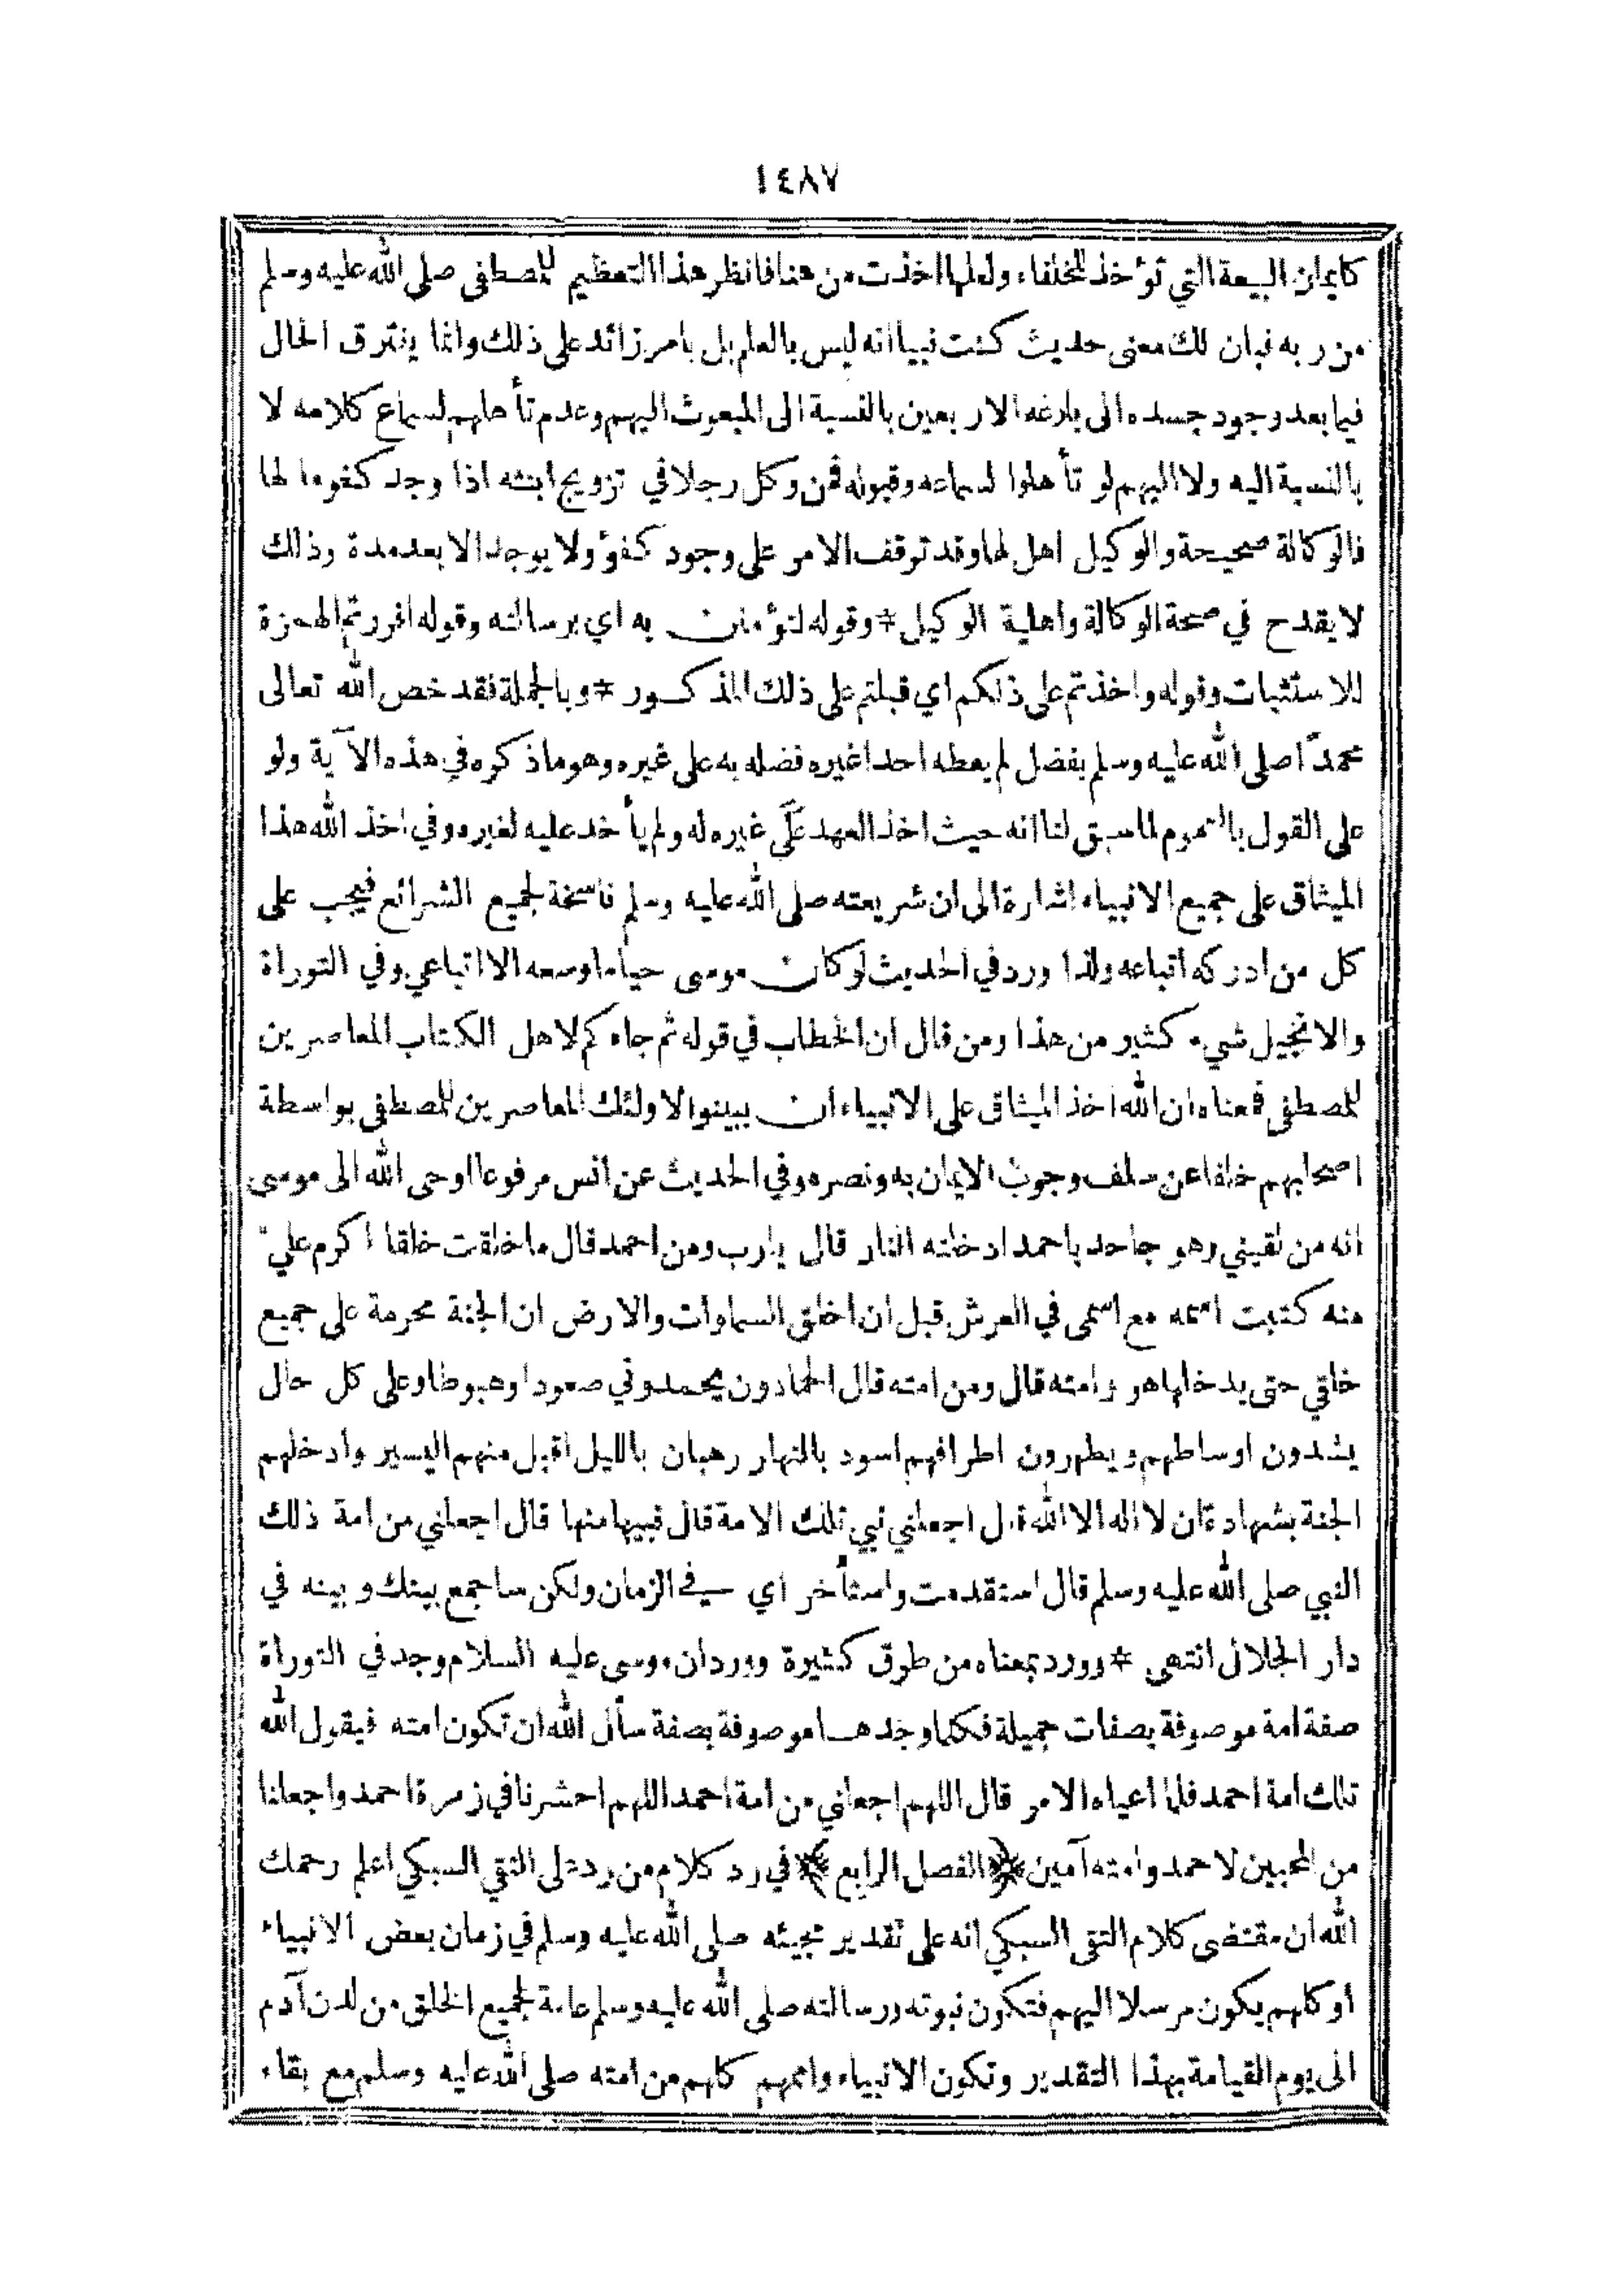 ١٤٨٧
كايمان البيعة التي تؤخذ للخلفاء ولعلها اخذت من هنا فانظر هذا التعظيم للمصطفى صلى الله عليه وسلم
من ربه فبان لك معنى حديث كنت نبيا انه ليس بالعلم بل بامر زائد على ذلك وانما يفترق الحال
فيما بعد وجود جسده الى بلوغه الاربعين بالنسبة الى المبعوث اليهم وعدم تأهلهم لسماع كلامه لا
بالنسبة اليه ولا اليهم لو تأهلوا لسماعه وقبوله فمن وكل رجلا في تزويج ابنته اذا وجد كفوءا لها
فالوكالة صحيحة والوكيل اهل لها وقد توقف الامر على وجود كفؤ ولا يوجد الا بعد مدة وذلك
لا يقدح في صحة الوكالة واهلية الوكيل * وقوله لتؤمنن به اي برسالته وقوله اقررتم الهمزة
للاستثبات وقوله واخذتم على ذلكم اي قبلتم على ذلك المذكور * وبالجملة فقد خص الله تعالى
محمدًا صلى الله عليه وسلم بفضل لم يعطه احدا غيره فضله به على غيره وهو ما ذكره في هذه الآية ولو
على القول بالعموم لما سبق لنا انه حيث اخذ العهد على غيره له ولم يأخد عليه لغيره وفي اخذ الله هذا
الميثاق على جميع الانبياء اشارة الى ان شريعته صلى الله عليه وسلم ناسخة لجميع الشرائع فيجب على
كل من ادركه اتباعه ولذا ورد في الحديث لو كان موسى حيا ما وسعه الا اتباعي وفي التوراة
والانجيل شيء كثير من هذا ومن قال ان الخطاب في قوله ثم جاءكم لاهل الكتاب المعاصرين
للمصطفى فمعناه ان الله اخذ الميثاق على الانبياء ان يبينوا لاولئك المعاصرين للمصطفى بواسطة
اصحابهم خلفا عن سلف وجوب الايمان به ونصره وفي الحديث عن انس مرفوعا اوحى الله الى موسى
انه من لقيني وهو جاحد باحمد ادخلته النار قال يارب ومن احمد قال ما خلقت خلقا اكرم علي
منه كتبت اسمه مع اسمى في العرش قبل ان اخلق السماوات والارض ان الجنة محرمة على جميع
خلقي حتى يدخلها هو وامته قال ومن امته قال الحمادون يحمدوني صعودا وهبوطا وعلى كل حال
يشدون اوساطهم ويطهرون اطرافهم اسود بالنهار رهبان بالليل اقبل منهم اليسير وادخلهم
الجنة بشهادة ان لا اله الا الله قال اجعلني نبي تلك الامة قال نبيها منها قال اجعلني من امة ذلك
النبي صلى الله عليه وسلم قال استقدمت واستأخر اي في الزمان ولكن ساجمع بينك وبينه في
دار الجلال انتهى * وورد بمعناه من طرق كثيرة وورد ان موسى عليه السلام وجد في التوراة
صفة امة موصوفة بصفات جميلة فكلما وجدها موصوفة بصفة سأل الله ان تكون امته فيقول الله
تلك امة احمد فلما اعياه الامر قال اللهم اجعلني من امة احمد اللهم احشرنا في زمرة احمد واجعلنا
من المحبين لاحمد وامته آمين ﴿الفصل الرابع﴾ في رد كلام من رد على التقي السبكي اعلم رحمك
الله ان مقتضى كلام التقى السبكي انه على تقدير مجيئه صلى الله عليه وسلم في زمان بعض الانبياء
او كلهم يكون مرسلا اليهم فتكون نبوته ورسالته صلى الله عليه وسلم عامة لجميع الخلق من لدن آدم
الى يوم القيامة بهذا التقدير وتكون الانبياء واممهم كلهم من امته صلى الله عليه وسلم مع بقاء